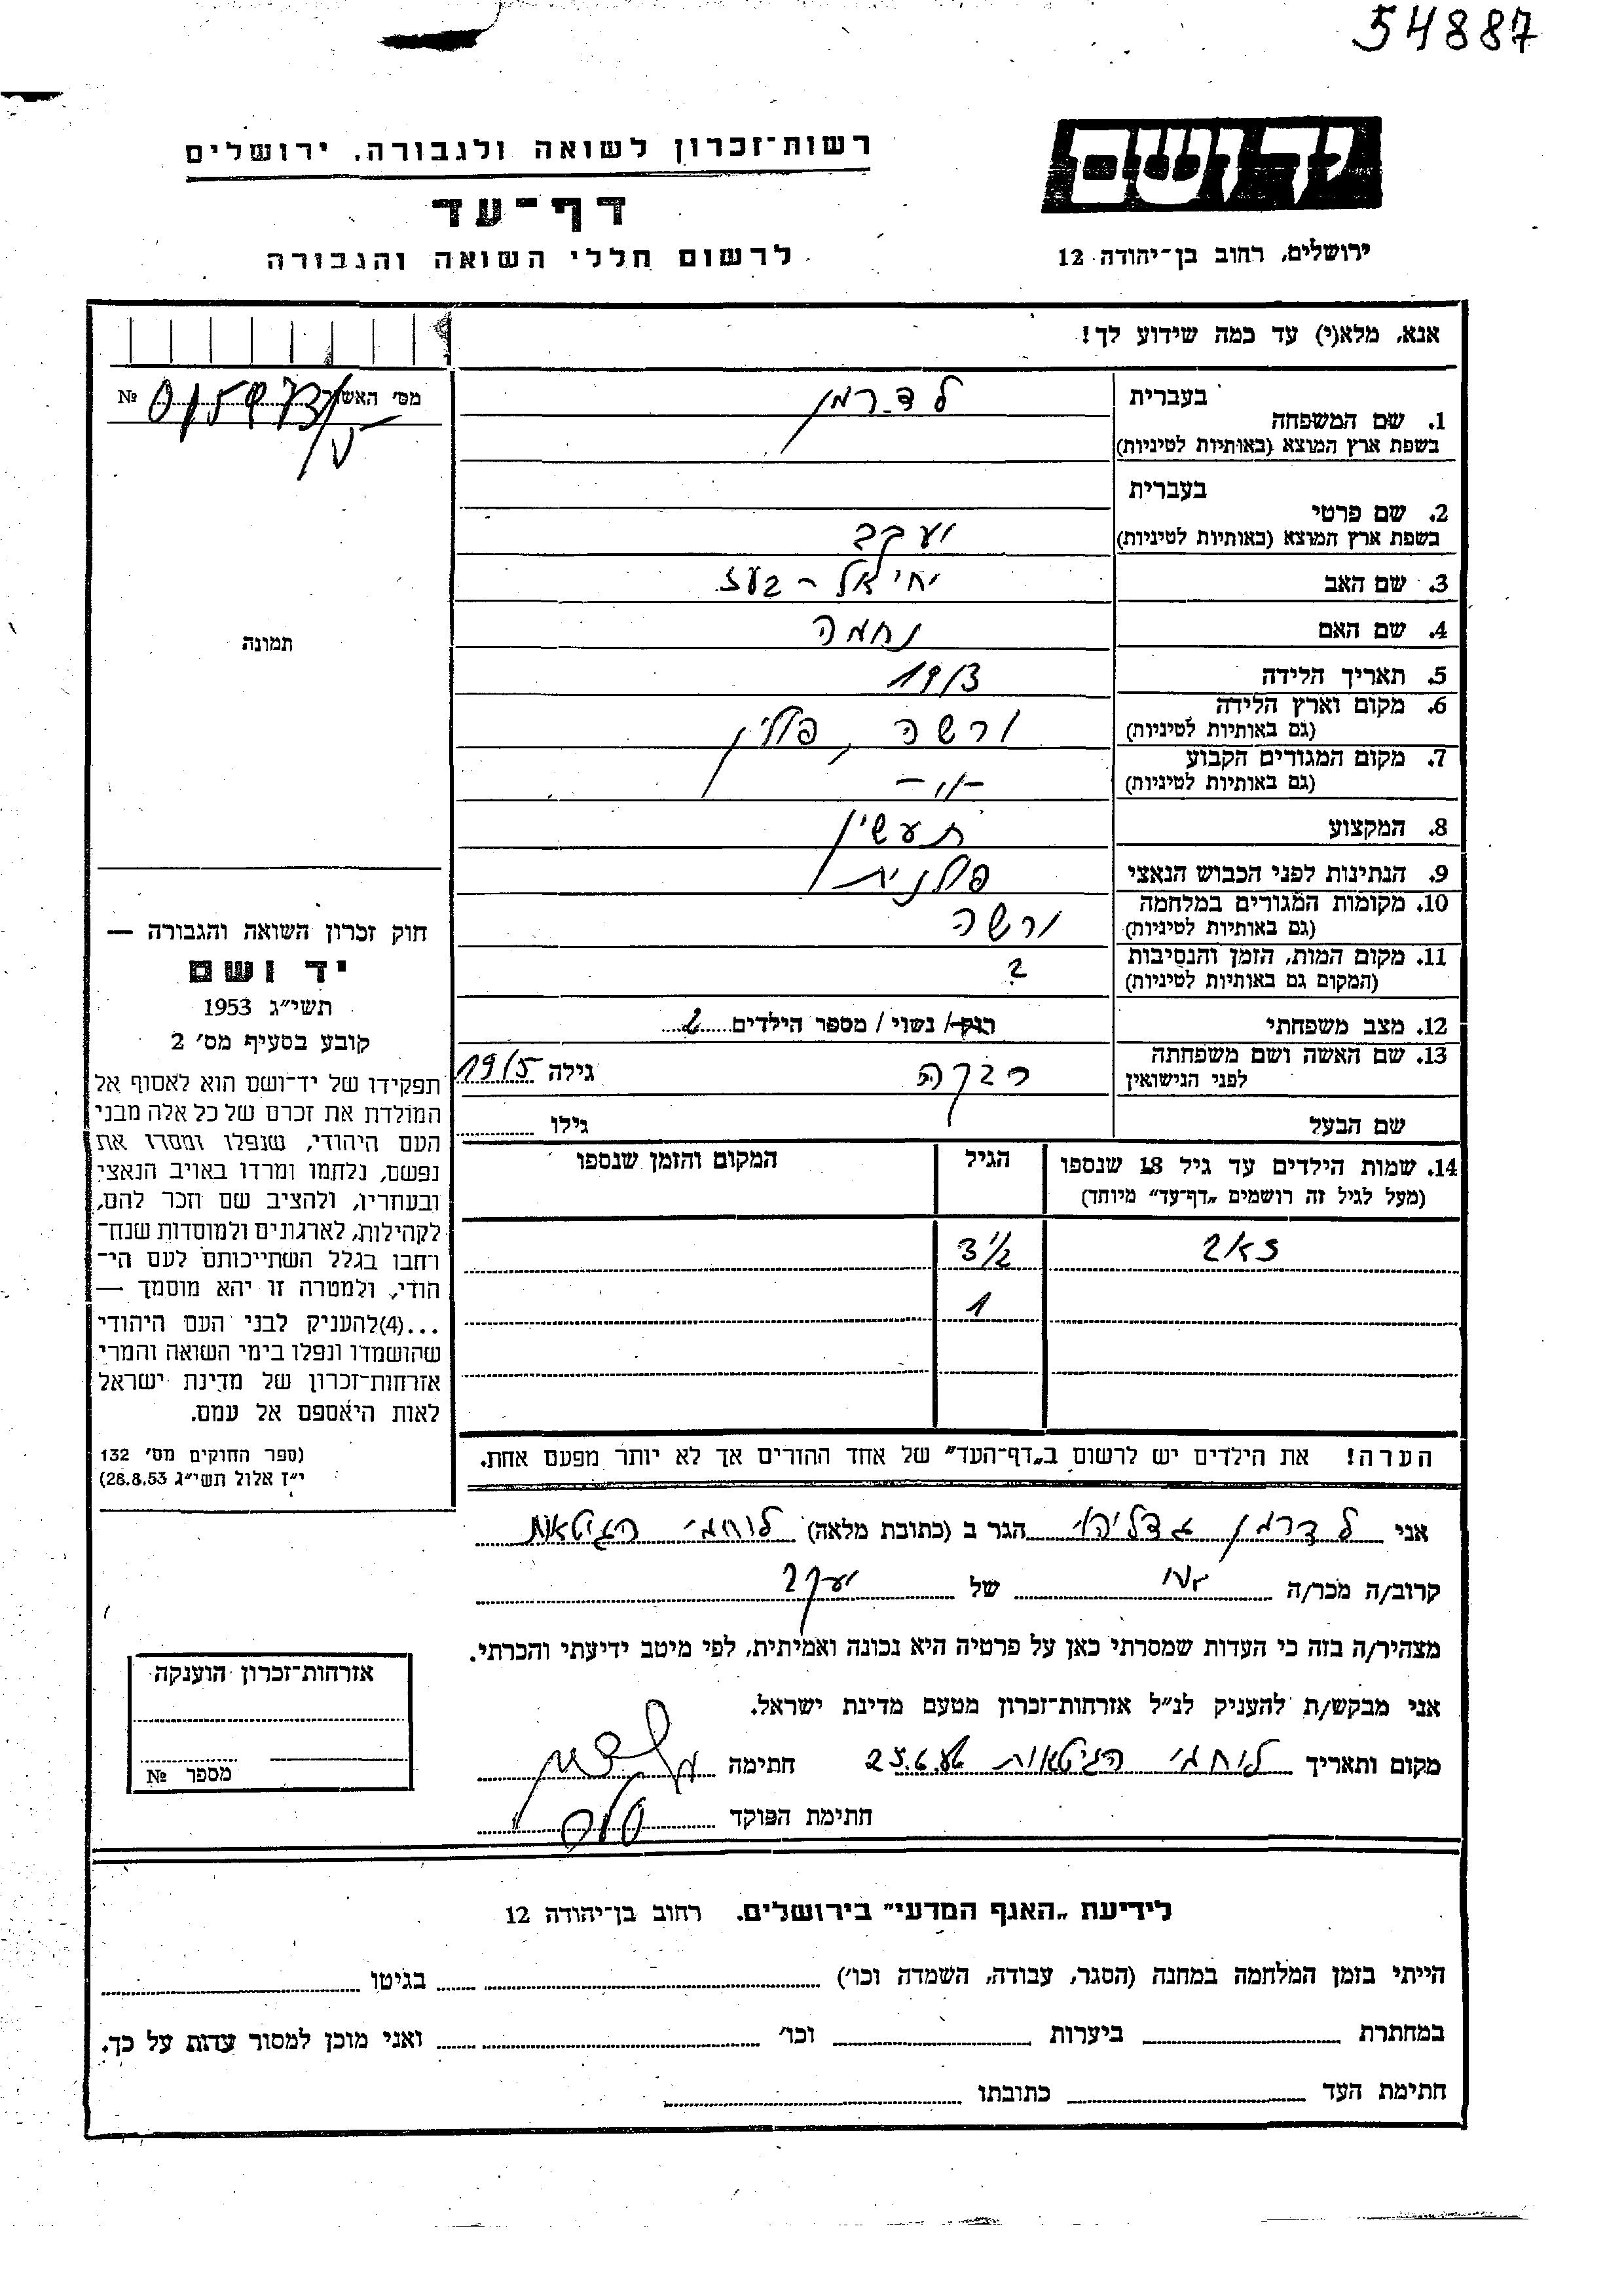 54887
יד ושם
רשות־זכרון לשואה ולגבורה, ירושלים
דף־עד
לרשום חללי השואה והגבורה
ירושלים, רחוב בן־יהודה 12
אנא, מלא(י) עד כמה שידוע לך!
מס׳ האשה №
1. שם המשפחה בעברית לדרמן
בשפת ארץ המוצא (באותיות לטיניות)
2. שם פרטי בעברית
בשפת ארץ המוצא (באותיות לטיניות) יעקב
3. שם האב יחיאל - בעז
4. שם האם נחמה
5. תאריך הלידה 1913
6. מקום וארץ הלידה
(גם באותיות לטיניות) ורשה, פולין
7. מקום המגורים הקבוע
(גם באותיות לטיניות) -"-
8. המקצוע תעשין
9. הנתינות לפני הכבוש הנאצי פולנית
10. מקומות המגורים במלחמה
(גם באותיות לטיניות) ורשה
11. מקום המות, הזמן והנסיבות
(המקום גם באותיות לטיניות) ?
12. מצב משפחתי רווק / נשוי / מספר הילדים 2
13. שם האשה ושם משפחתה
לפני הנישואין רבקה גילה 1915
שם הבעל גילו
14. שמות הילדים עד גיל 18 שנספו הגיל המקום והזמן שנספו
(מעל לגיל זה רושמים „דף־עד” מיוחד)
זאב 3 1/2
1
הערה! את הילדים יש לרשום ב„דף־העד” של אחד ההורים אך לא יותר מפעם אחת.
תמונה
חוק זכרון השואה והגבורה —
יד ושם
תשי״ג 1953
קובע בסעיף מס׳ 2
תפקידו של יד־ושם הוא לאסוף אל
המולדת את זכרם של כל אלה מבני
העם היהודי, שנפלו ומסרו את
נפשם, נלחמו ומרדו באויב הנאצי
ובעוזריו, ולהציב שם וזכר להם,
לקהילות, לארגונים ולמוסדות שנח־
רחבו בגלל השתייכותם לעם הי־
הודי, ולמטרה זו יהא מוסמך —
...(4)להעניק לבני העם היהודי
שהושמדו ונפלו בימי השואה והמרי
אזרחות־זכרון של מדינת ישראל
לאות היאספם אל עמם.
(ספר החוקים מס׳ 132
י״ז אלול תשי״ג 28.8.53)
אני לדרמן גדליהו הגר ב (כתובת מלאה) לוחמי הגיטאות
קרוב/ה מכר/ה אחי של יעקב
מצהיר/ה בזה כי העדות שמסרתי כאן על פרטיה היא נכונה ואמיתית, לפי מיטב ידיעתי והכרתי.
אני מבקש/ת להעניק לנ״ל אזרחות־זכרון מטעם מדינת ישראל.
מקום ותאריך לוחמי הגיטאות חתימה
חתימת הפוקד
אזרחות־זכרון הוענקה
מספר №
לידיעת „האגף המדעי” בירושלים. רחוב בן־יהודה 12
הייתי בזמן המלחמה במחנה (הסגר, עבודה, השמדה וכו׳) בגיטו
במחתרת ביערות וכו׳ ואני מוכן למסור עדות על כך.
חתימת העד כתובתו